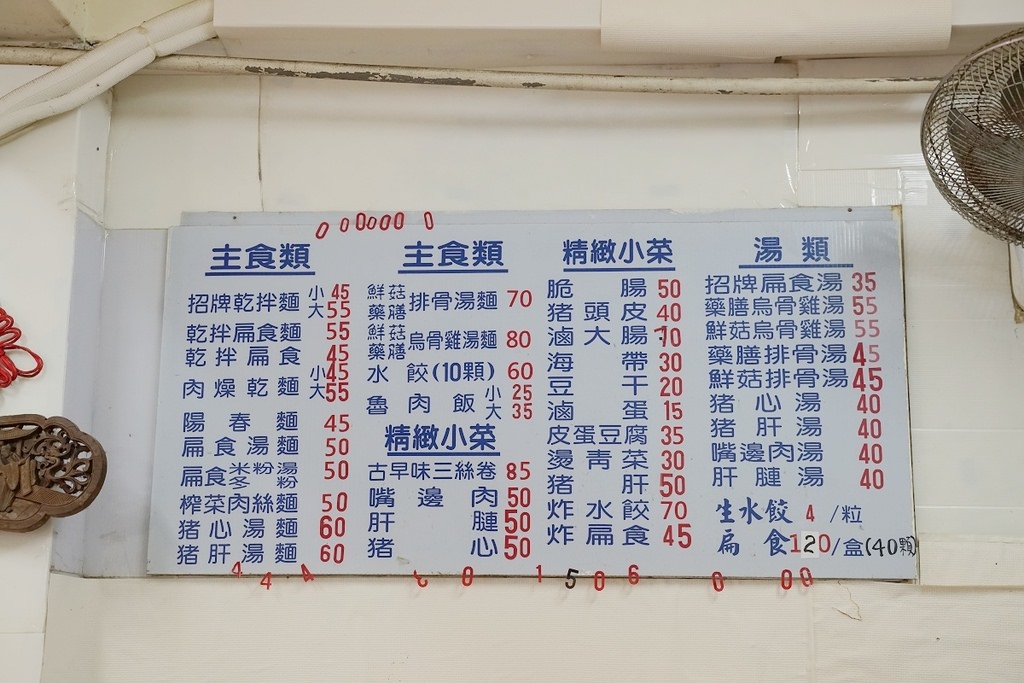 主食類
招牌乾拌麵 小 45 大 55
乾拌扁食麵 55
乾拌扁食 45
肉燥乾麵 小 45 大 55
陽春麵 45
扁食湯麵 50
扁食米粉湯 冬粉 50
榨菜肉絲麵 50
猪心湯麵 60
猪肝湯麵 60
主食類
鮮菇 藥膳 排骨湯麵 70
鮮菇 藥膳 烏骨雞湯麵 80
水餃(10顆) 60
魯肉飯 小 25 大 35
精緻小菜
古早味三絲卷 85
嘴邊肉 50
肝腱 50
猪心 50
精緻小菜
脆腸 50
猪頭皮 40
滷大腸 70
海帶 30
豆干 20
滷蛋 15
皮蛋豆腐 35
燙青菜 30
猪肝 50
炸水餃 70
炸扁食 45
湯類
招牌扁食湯 35
藥膳烏骨雞湯 55
鮮菇烏骨雞湯 55
藥膳排骨湯 45
鮮菇排骨湯 45
猪心湯 40
猪肝湯 40
嘴邊肉湯 40
肝腱湯 40
生水餃 4 /粒
扁食120/盒(40顆)